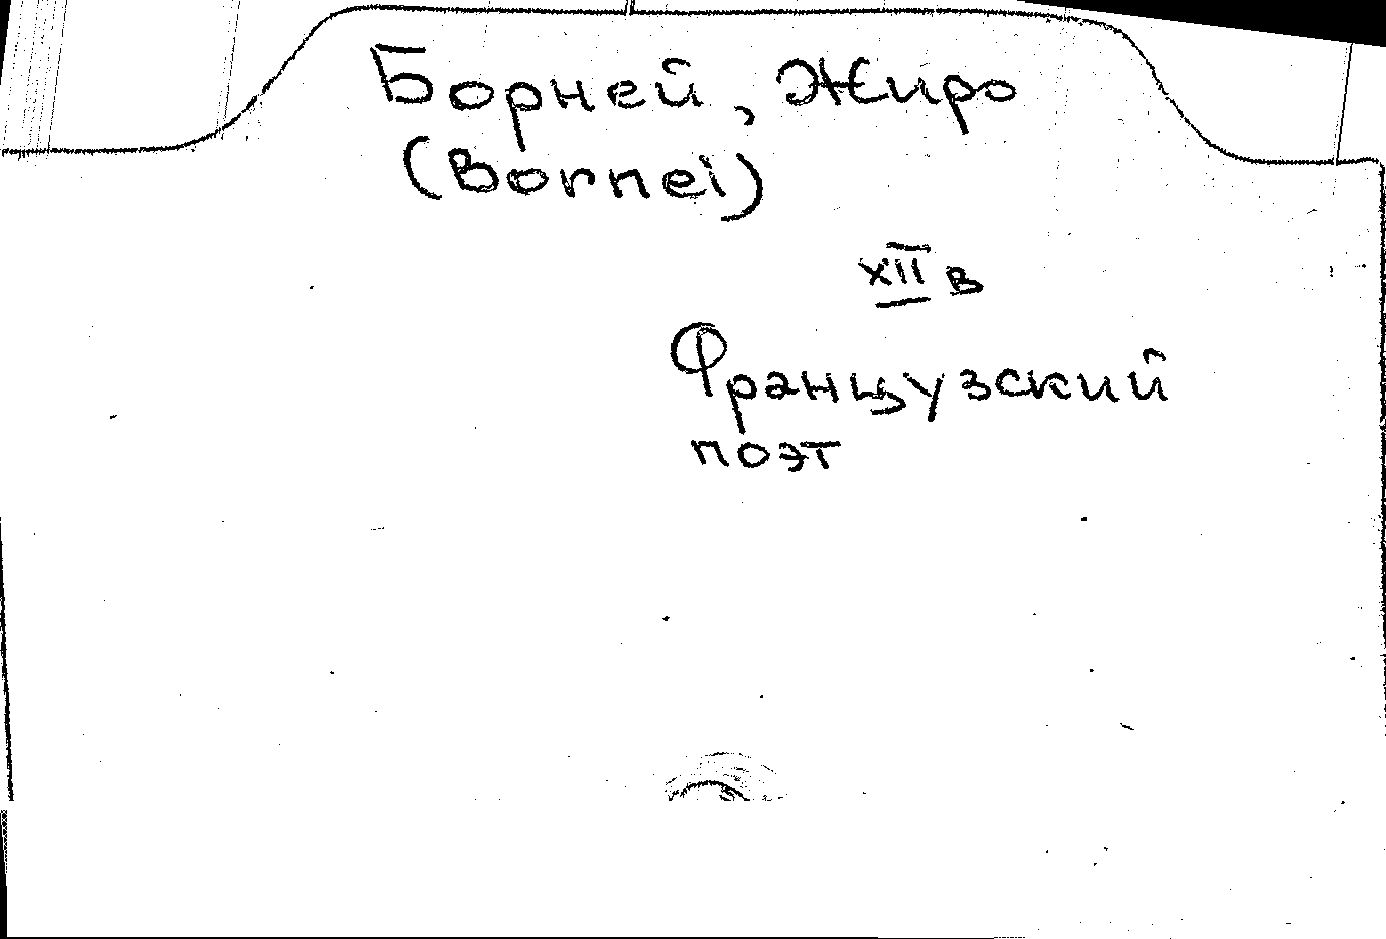 Борней, Жиро
(Bornei)
XII в
Французский
поэт